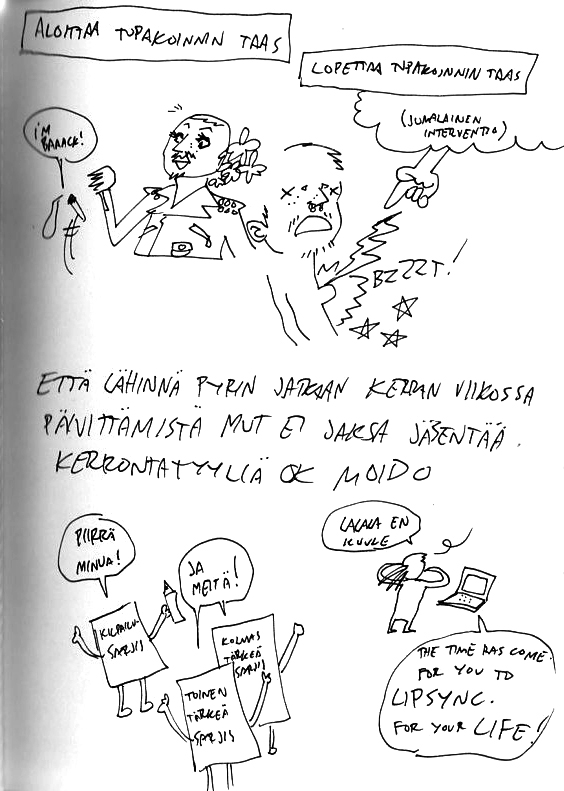 ALOITTAA TUPAKOINNIN TAAS
LOPETTAA TUPAKOINNIN TAAS
(JUMALAINEN
INTERVENTIO)
I'M
BAAACK!
BZZZT!
ETTÄ LÄHINNÄ PYRIN JATKAAN KERRAN VIIKOSSA
PÄIVITTÄMISTÄ MUT EI JAKSA JÄSENTÄÄ
KERRONTATYYLIÄ OK MOIDO
PIIRRÄ
MINUA!
JA
MEITÄ!
LALALA EN
KUULE
KILPAILU-
SARJIS
KOLMAS
TÄRKEÄ
SARJIS
TOINEN
TÄRKEÄ
SARJIS
THE TIME HAS COME.
FOR YOU TO
LIPSYNC.
FOR YOUR LIFE!